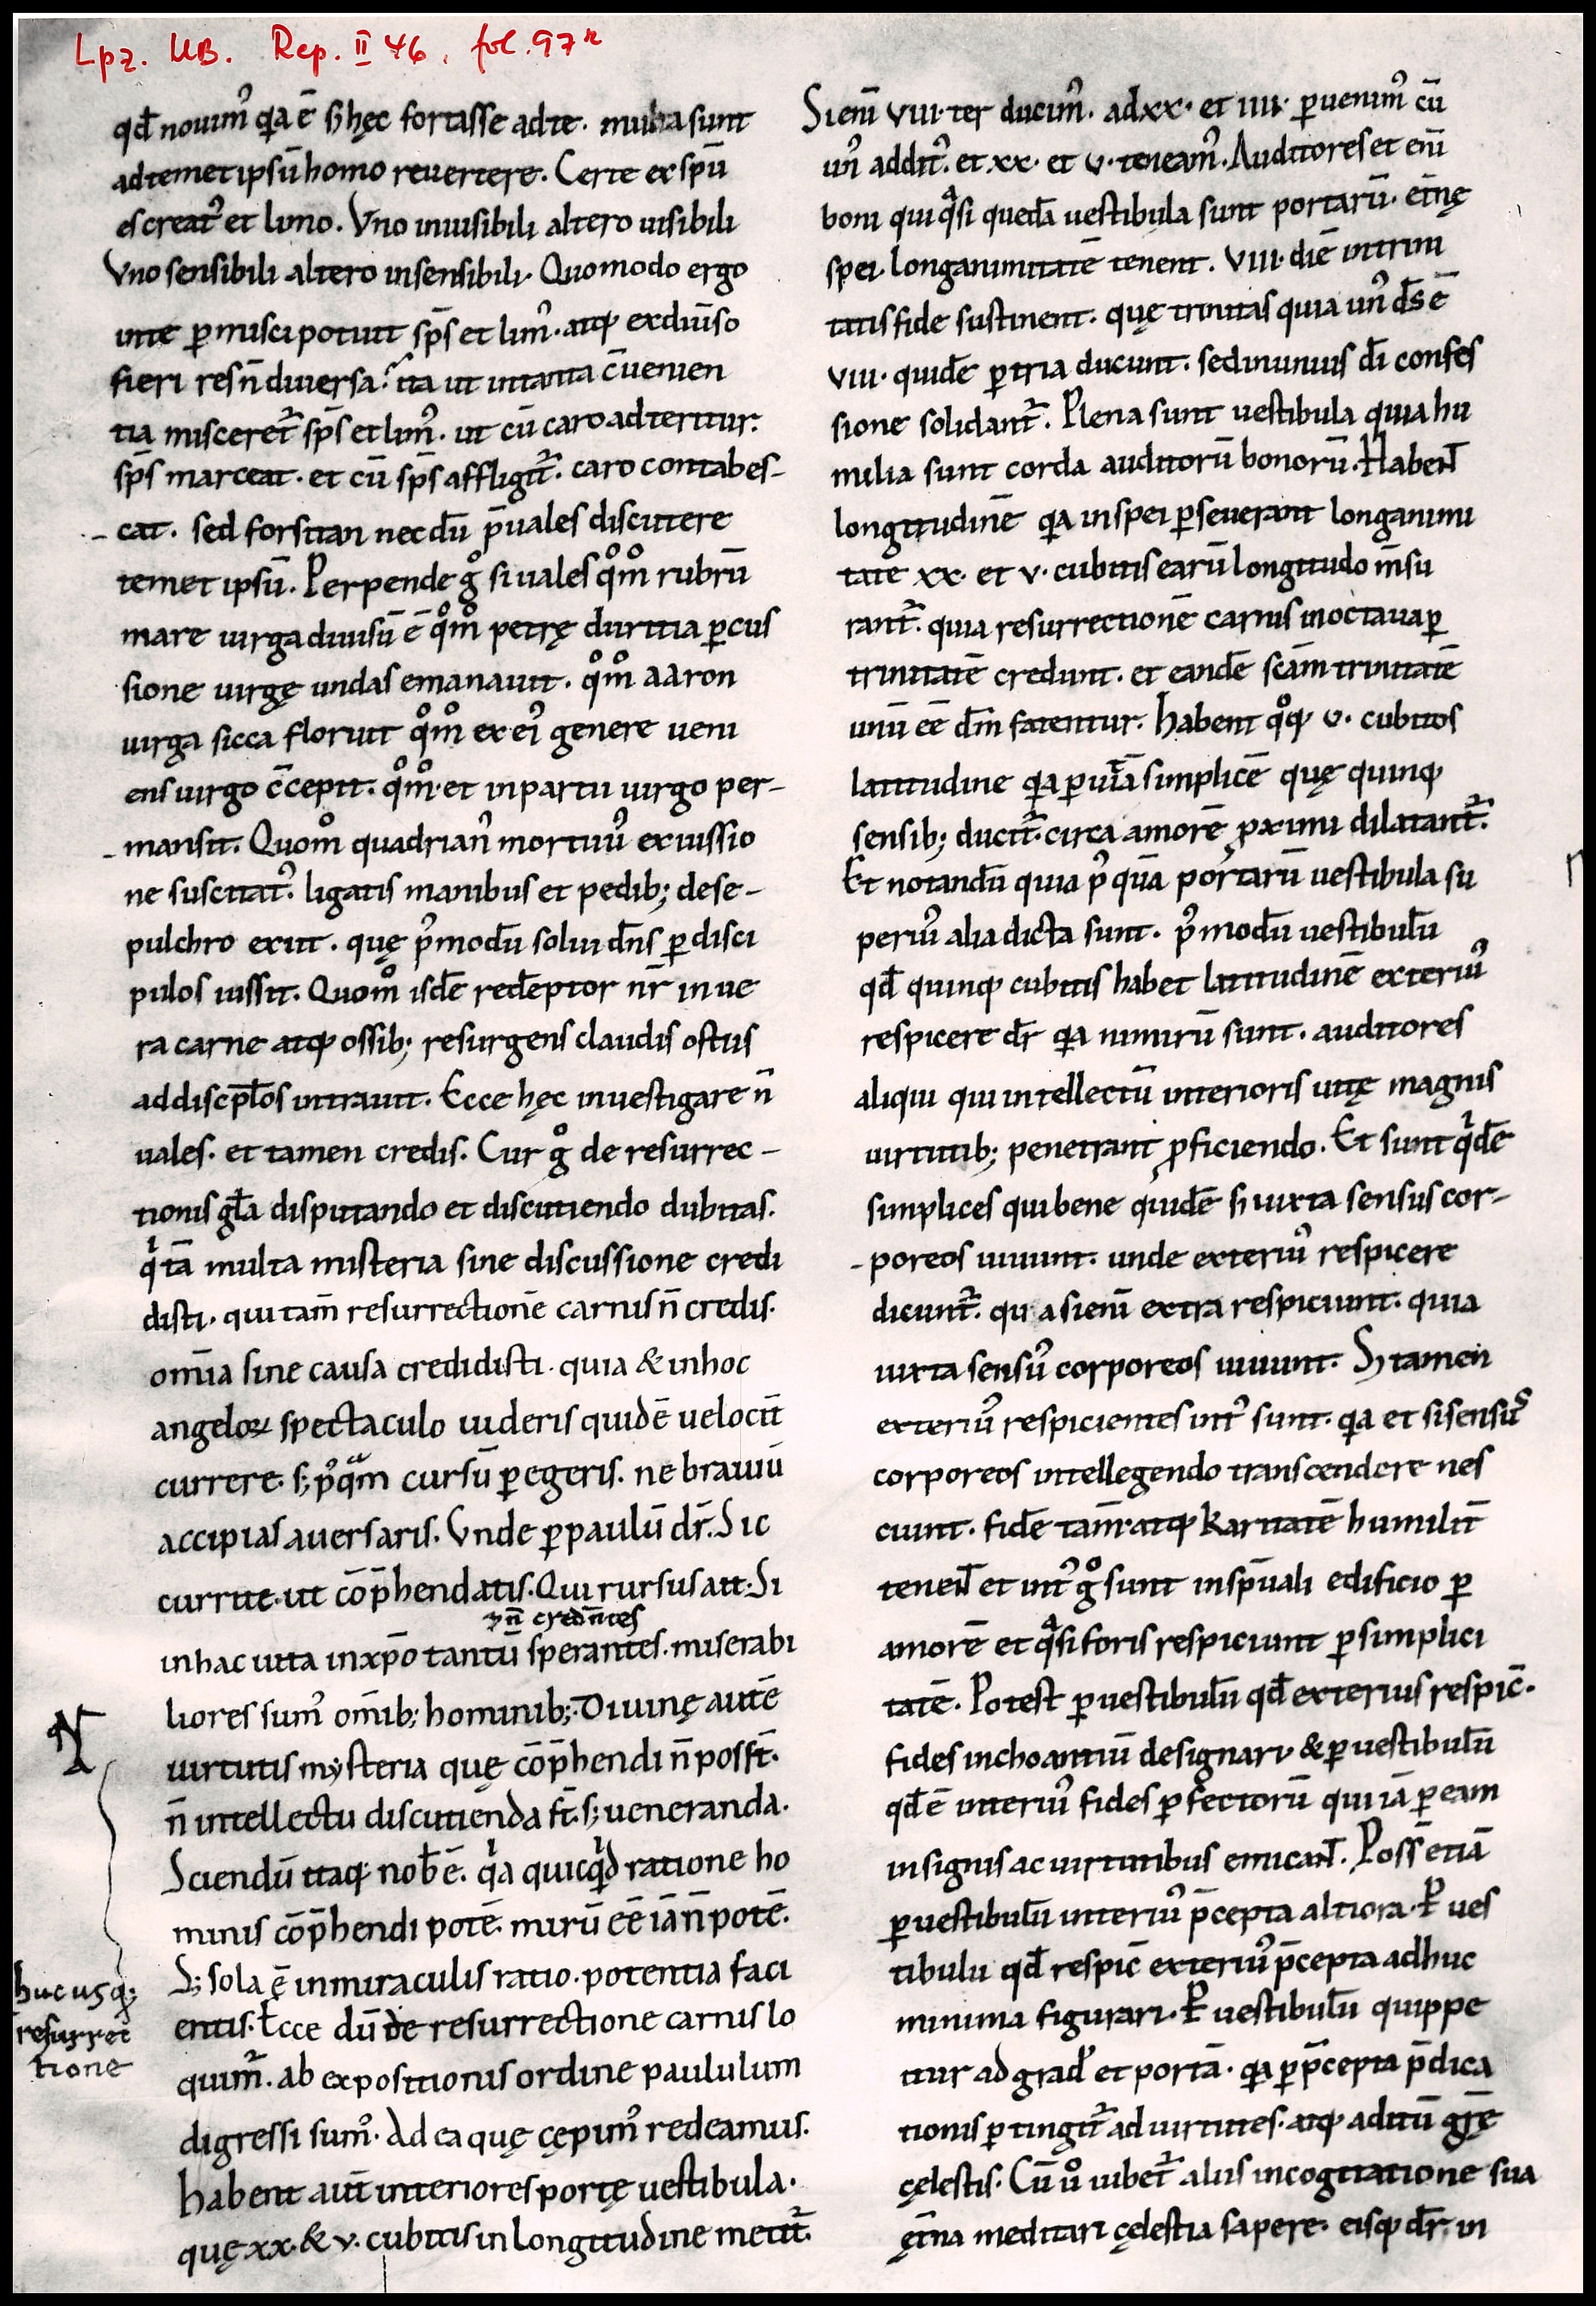 Lpz. UB. Rep. II 46, fol. 97r
qđ nouim᷒ qa ē sʒ hęc fortasse ad te. multa sunt
ad temet ipsū homo reuertere. Certe ex spū
es creat᷒ et limo. Vno inuisibili altero uisibili
Vno sensibili altero insensibili. Quomodo ergo
in te ꝑmisci potuit sp̄s et lim᷒. atqꝫ ex diūso
fieri res n̄ diuersa. ita ut in tanta c̄uenien
tia misceret᷑ sp̄s et lim᷒. ut cū caro adteritur.
sp̄s marceat. et cū sp̄s affligit᷑. caro contabes-
-cat. sed forsitan necdū p̄uales discutere
temet ipsū. Perpende gͦ si uales qͦmͦ rubrū
mare uirga diuisū ē qͦmͦ petrę duritia ꝑcus
sione uirgę undas emanauit. qͦmͦ aaron
uirga sicca floruit qͦmͦ ex ei᷒ genere ueni
ens uirgo c̄cepit. qͦmͦ et in partu uirgo per-
-mansit. Quomͦ quadrian᷒ mortuu᷒ ex iussio
ne suscitat᷒. ligatis manibus et pedibꝫ de se-
pulchro exiit. quę p᷒modū solui dn̄s ꝑ disci
pulos iussit. Quomͦ isdē redēptor nr̄ in ue
ra carne atqꝫ ossibꝫ resurgens clausis ostiis
ad discpl̄os intrauit. Ecce hęc inuestigare n̄
uales. et tamen credis. Cur gͦ de resurrec-
tionis gl̄a disputando et discutiendo dubitas.
qͥ tā multa misteria sine discussione credi
disti. qui tam̄ resurrectionē carnis n̄ credis.
omīa sine causa credidisti. quia & in hoc
angeloꝝ spectaculo uideris quidē uelocit̄
currere. sꝫ p᷒qͣm cursū ꝑegeris. ne brauiū
accipias auersaris. Vnde ꝑ paulū dr̄. Sic
currite. ut cōp̄hendatis. Qui rursus ait. Si
⁊ n̄ credn̄tes
in hac uita in xp̄o tantū sperantes. miserabi
liores sum᷒ om̄ibꝫ hominibꝫ. Diuinę autē
uirtutis mysteria quę cōp̄hendi n̄ posst̄.
n̄ intellectu discutienda st̄. sꝫ ueneranda.
Sciendū itaqꝫ nob̄ ē. qͥa quicqͥd ratione ho
minis cōp̄hendi potē. mirū eē iā n̄ potē.
Sꝫ sola ē in miraculis ratio. potentia faci
entis. Ecce dū de resurrectione carnis lo
quim᷑. ab expositionis ordine paululum
digressi sum᷒. Ad ea quę cępim᷒ redeamus.
habent aut̄ interiores portę uestibula.
quę xx. & v. cubitis in longitudine metit᷑.
N
A
huc usqꝫ
resurrec
tione
Si eni̅ VIII. ter ducim᷒. ad xx. et IIII. ꝑuenim᷒ cū
un᷒ addit᷑. et xx. et v. teneam᷒. Auditores et eni̅
boni qui qͣsi quedā uestibula sunt portarū. et̄nę
spei. longanimitatē tenent. VIII. diē in trini
tatis fide sustinent. quę trinitas quia un᷒ dš ē
VIII. quidē ꝑ tria ducunt. sed in unius dī confes
sione solidant᷑. Plena sunt uestibula quia hu
milia sunt corda auditorū bonorū. Habent
longitudinē qa in spei ꝑseuerant longanimi
tate xx. et v. cubitis earū longitudo m̄su
rant᷑. quia resurrectionē carnis in octaua ꝑ
trinitatē credunt. et eandē scām trinitatē
unū eē dm̄ fatentur. habent qͦqꝫ v. cubitos
latitudine qa ꝑ uitā simplicē quę quinqꝫ
sensibꝫ ducit᷑. circa amorē ꝓximi dilatant᷑.
Et notandū quia p᷒ quā portarū uestibula su
periu᷒ alia dicta sunt. p᷒modū uestibulū
qđ quinqꝫ cubitis habet latitudinē exteriu᷒
respicere dr̄ qa nimirū sunt. auditores
aliqui qui intellectū interioris uitę magnis
uirtutibꝫ penetrant ꝓficiendo. Et sunt qͥdē
simplices qui bene quidē sʒ iuxta sensus cor-
-poreos uiuunt. unde exteriu᷒ respicere
dicunt᷑. qui a si eni̅ extra respiciunt. quia
iuxta sensu᷒ corporeos uiuunt. Sʒ tamen
exteriu᷒ respicientes int᷒ sunt. qa et si sensus
corporeos intellegendo transcendere nes
ciunt. fidē tam̄ atqꝫ karitatē humilit̄
tenent et int᷒ gͦ sunt in sp̄uali edificio ꝑ
amorē et qͣsi foris respiciunt ꝑ simplici
tatē. Potest ꝑ uestibulū qđ exterius respic̄.
fides inchoantiū designari & ꝑ uestibulū
qđ ē interiu᷒ fides ꝑfectorū qui iā ꝑ eam
in signis ac uirtutibus emicant. Poss̄ etiā
ꝑ uestibulū interiu᷒ p̄cepta altiora. P ues
tibulū qđ respic̄ exteriu᷒ p̄cepta adhuc
minima figurari. P uestibulū quippe
itur ad grad᷒ et portā. qa ꝑ p̄cepta p̄dica
tionis ꝑtingit᷑ ad uirtutes. atqꝫ aditū gr̄ę
cęlestis. Cū uͦ iubet᷑ aliis in cogitatione sua
ęt̄na meditari cęlestia sapere. eisqꝫ dr̄. in